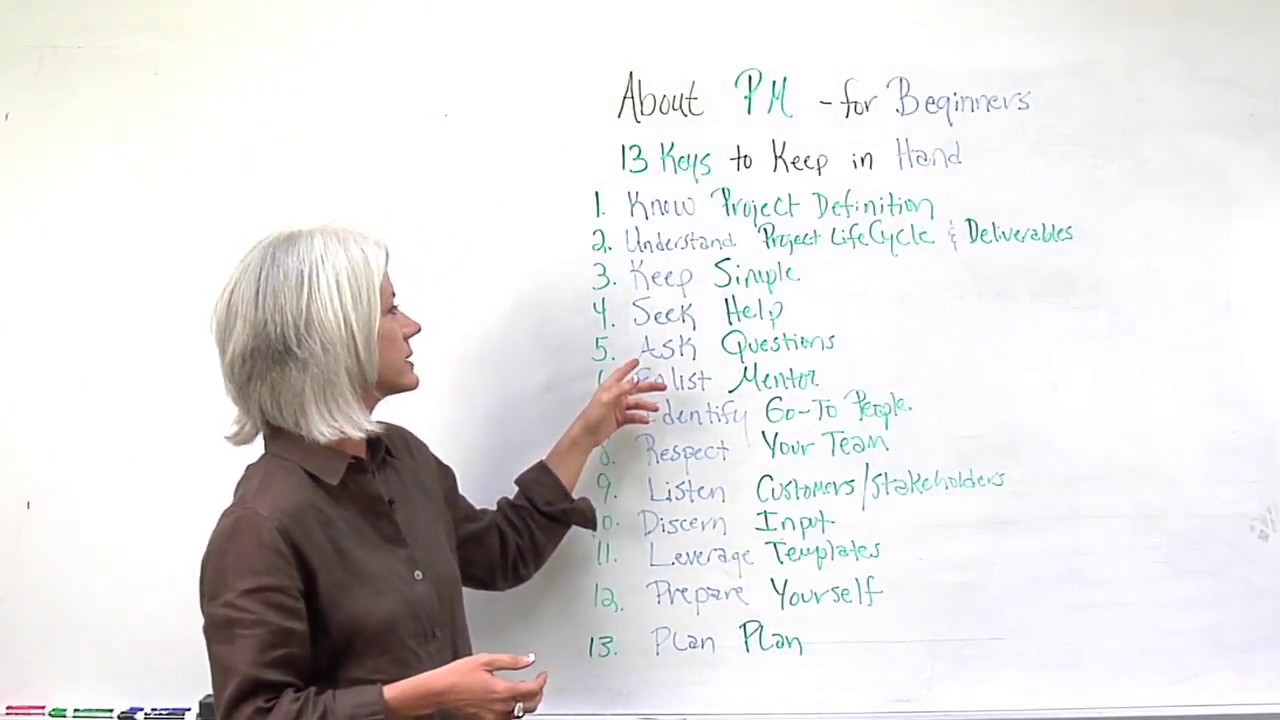 About PM - for Beginners
13 Keys to Keep in Hand
1. Know Project Definition
2. Understand Project LifeCycle & Deliverables
3. Keep Simple
4. Seek Help
5. Ask Questions
Enlist Mentor
Identify Go-To People.
8. Respect Your Team
9. Listen Customers/Stakeholders
10. Discern Input
11. Leverage Templates
12. Prepare Yourself
13. Plan Plan